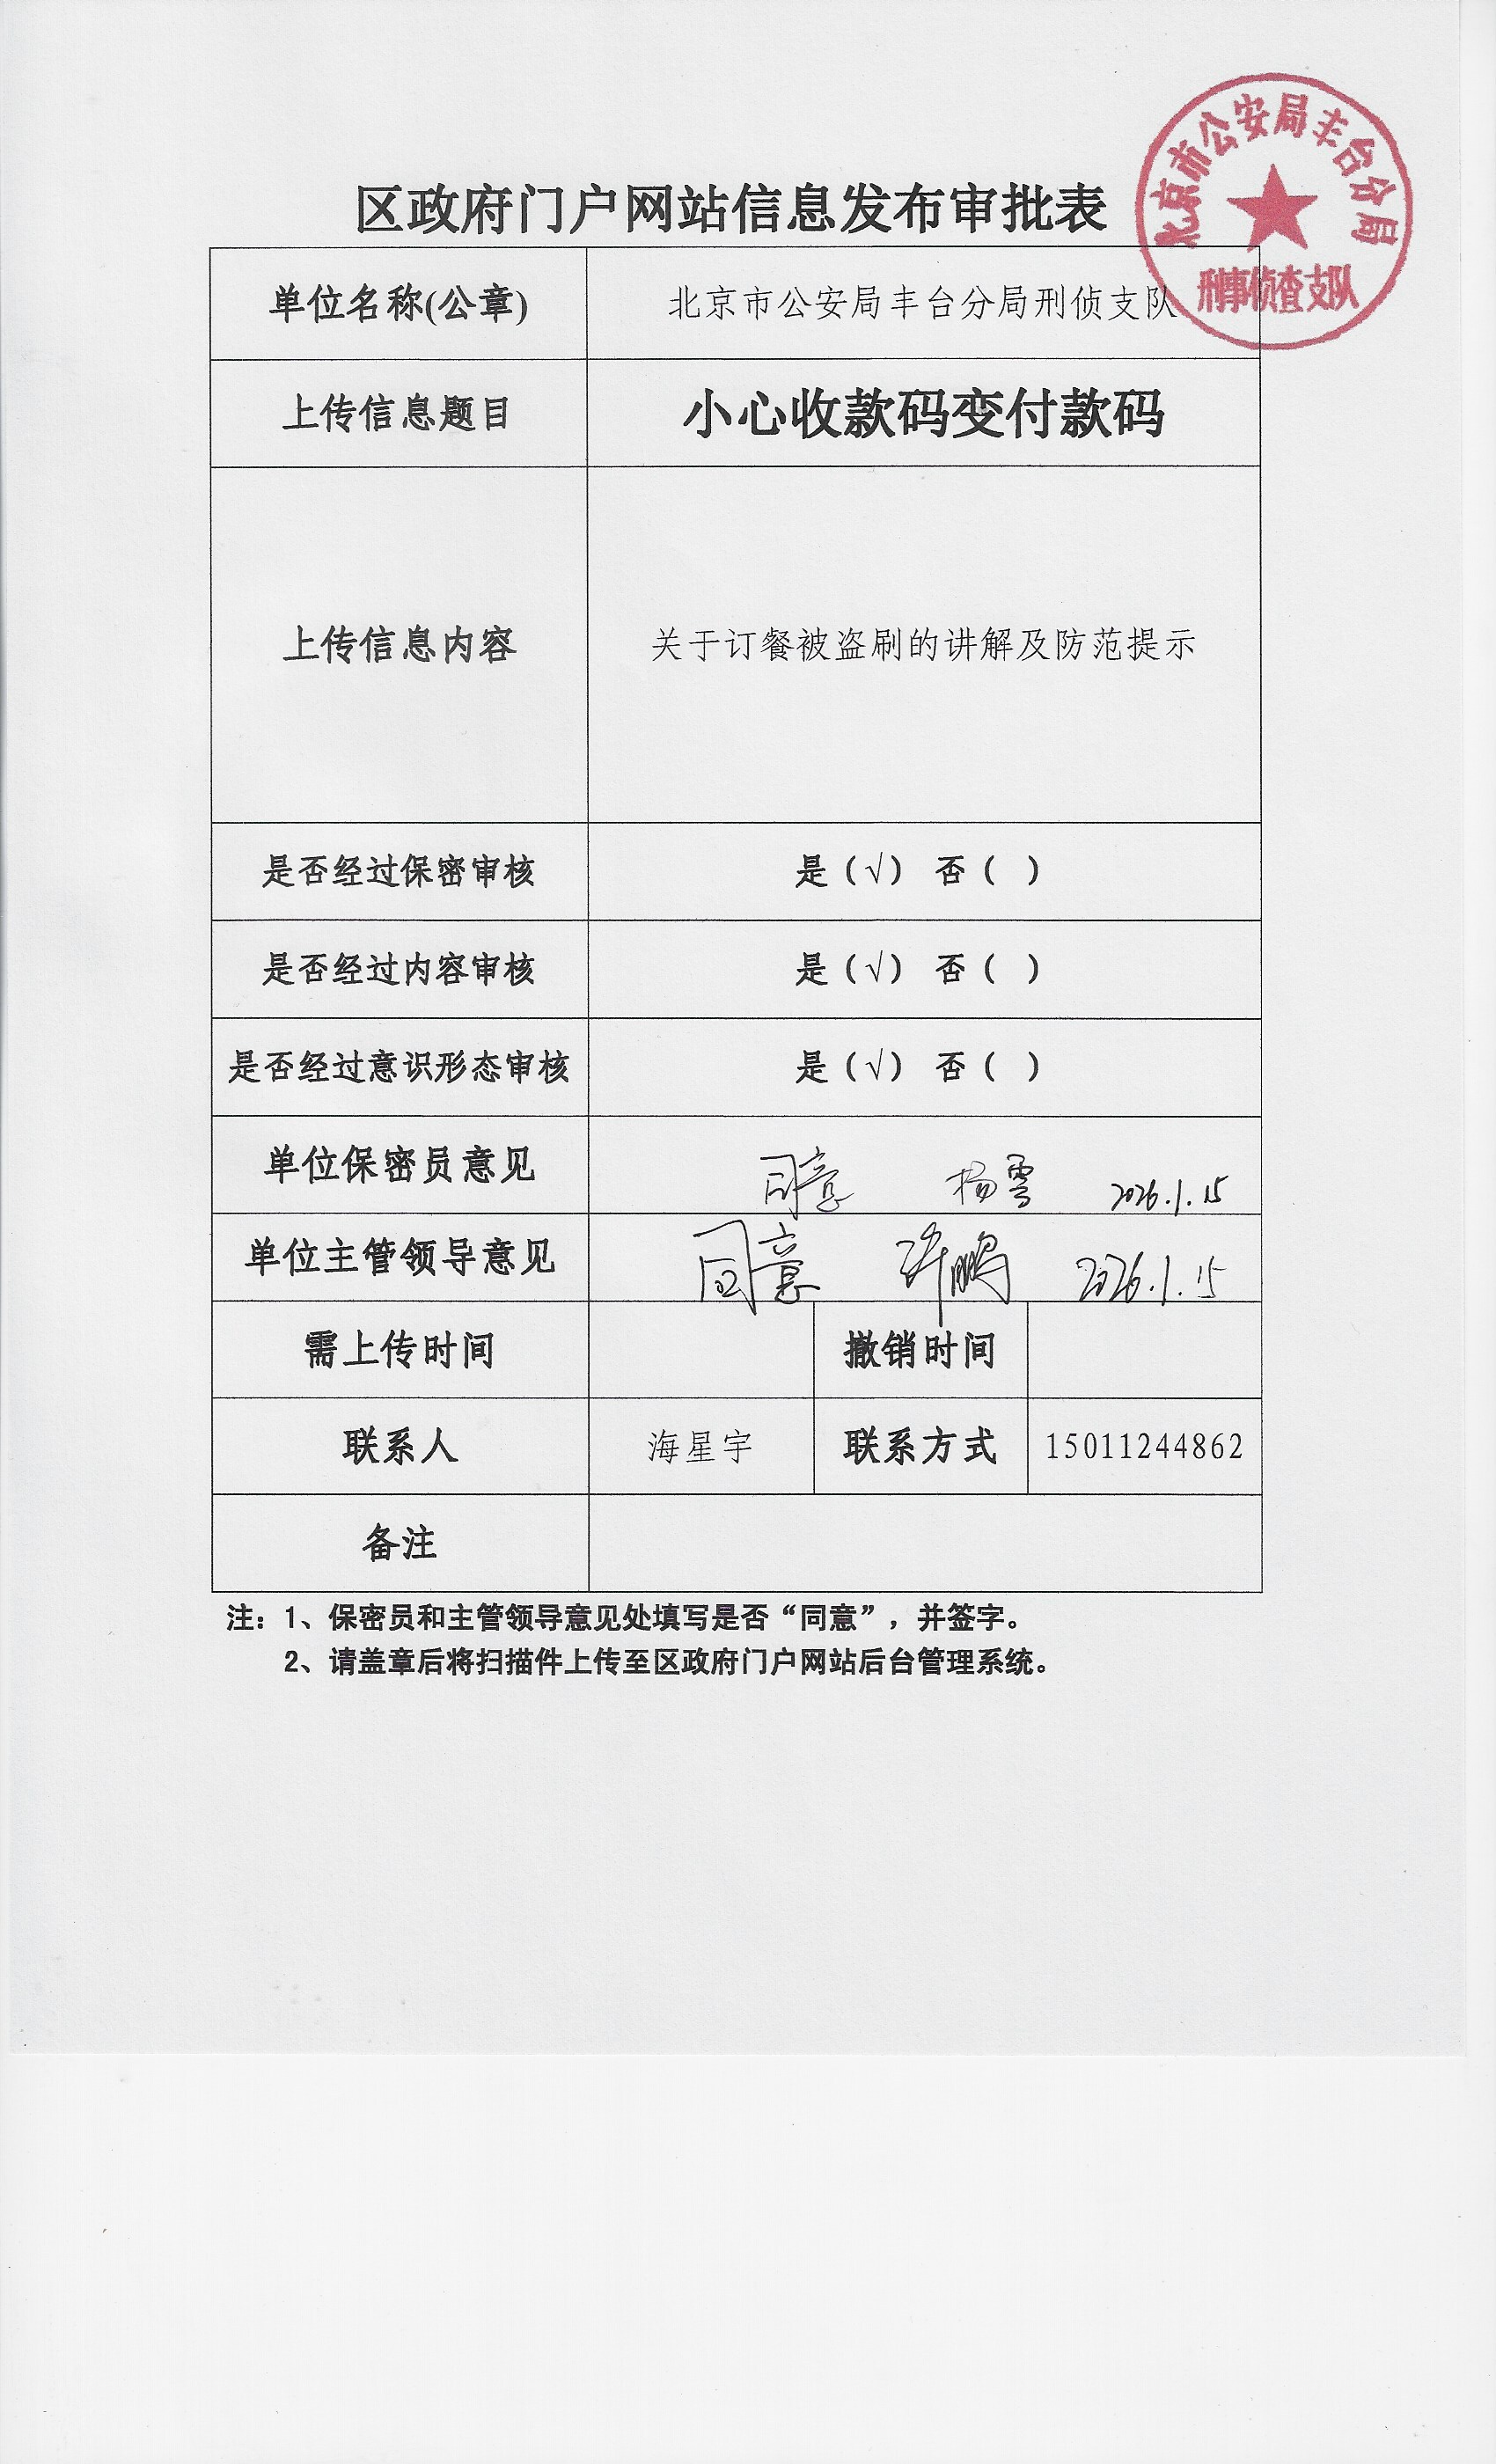 北京市公安局丰台分局
刑事侦查支队
区政府门户网站信息发布审批表
单位名称(公章) 北京市公安局丰台分局刑侦支队
上传信息题目 小心收款码变付款码
上传信息内容 关于订餐被盗刷的讲解及防范提示
是否经过保密审核 是（√） 否（ ）
是否经过内容审核 是（√） 否（ ）
是否经过意识形态审核 是（√） 否（ ）
单位保密员意见 同意 杨雪 2026.1.15
单位主管领导意见 同意 许鹏 2026.1.15
需上传时间 撤销时间
联系人 海星宇 联系方式 15011244862
备注
注：1、保密员和主管领导意见处填写是否“同意”，并签字。
2、请盖章后将扫描件上传至区政府门户网站后台管理系统。